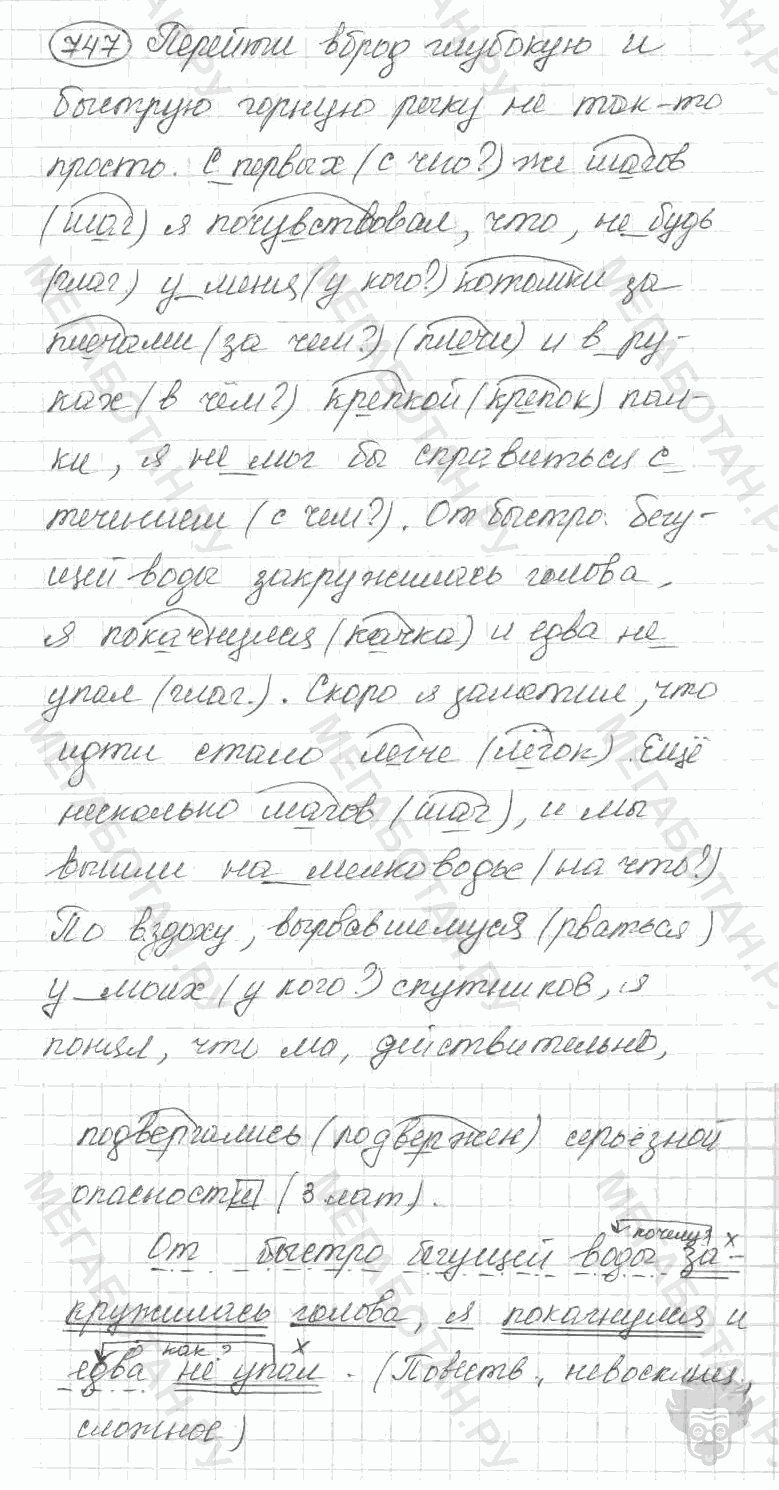 747 Перейти вброд глубокую и
быструю горную речку не так-то
просто. С первых (с чего?) же шагов
(шаг) я почувствовал, что, не будь
(глаг) у меня (у кого?) котомки за
плечами (за чем?) (плечи) и в ру-
ках (в чём?) крепкой (крепок) пал-
ки, я не мог бы справиться с
течением (с чем?). От быстро бегу-
щей воды закружилась голова,
я покачнулся (качка) и едва не
упал (глаг.). Скоро я заметил, что
идти стало легче (лёгок). Ещё
несколько шагов (шаг), и мы
вышли на мелководье (на что?)
По вздоху, вырвавшемуся (рваться)
у моих (у кого?) спутников, я
понял, что мы, действительно,
подвергались (подвержен) серьёзной
опасности (3 пат).
почему? х
От быстро бегущей воды за-
кружилась голова, я покачнулся и
как? х
едва не упал. (Повеств., невосклиц.,
сложное)
МЕГАБОТАН.РУ